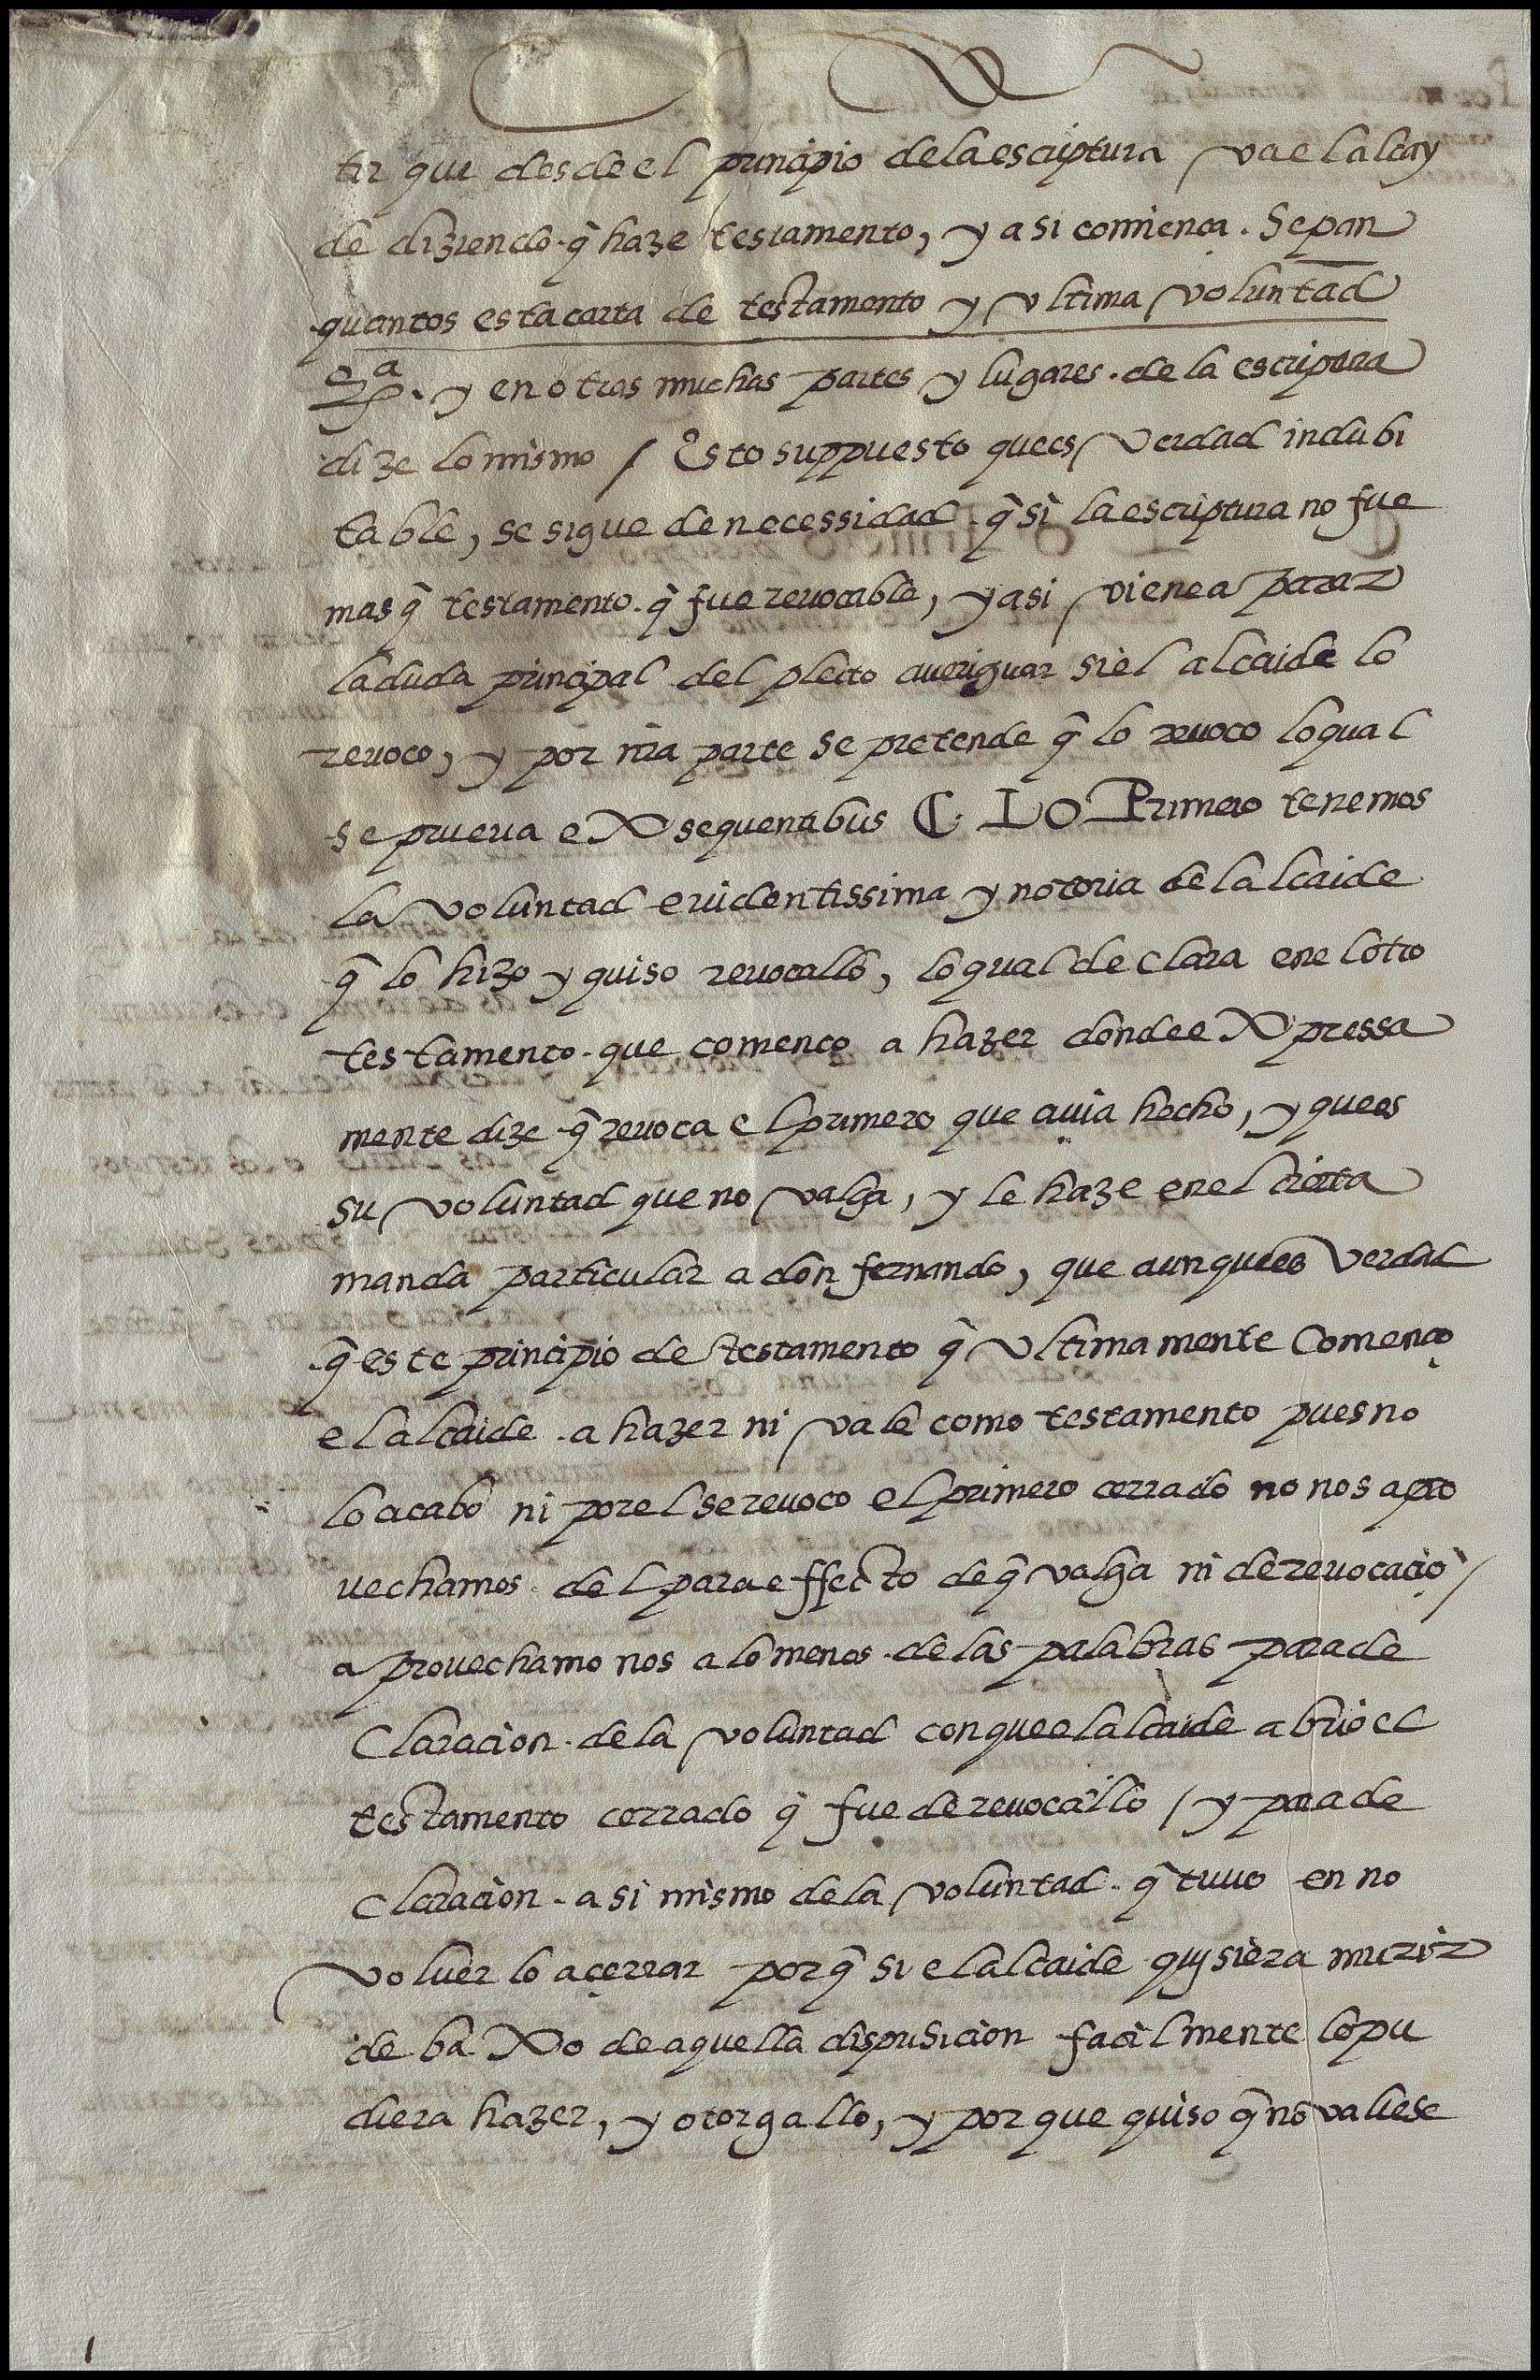 tir que desde el principio de la escriptura va el alcay
de diziendo q̃ haze testamento, y asi comiença. Sepan
quantos esta carta de testamento y vltima voluntad
y en otras muchas partes y lugares de la escriptura
dize lo mismo / Esto suppuesto que es verdad indubi
table, se sigue de necessidad q̃ si la escriptura no fue
mas q̃ testamento q̃ fue reuocable, y asi viene a parar
la duda principal del pleito aueriguar si el alcaide lo
reuoco, y por nr̃a parte se pretende q̃ lo reuoco lo qual
se prueua ex sequentibus C. Lo Primero tenemos
la voluntad euidentissima y notoria del alcaide
q̃ lo hizo y quiso reuocallo, lo qual declara en el otro
testamento que començo a hazer donde expressa
mente dize q̃ reuoca el primero que auia hecho, y que es
su voluntad que no valga, y le haze en el cierta
manda particular a don fernando, que aunque es verdad
q̃ este principio de testamento q̃ vltimamente Començo
el alcaide a hazer ni vale como testamento pues no
lo acabo ni por el se reuoco el primero cerrado no nos apro
uechamos del para effecto de q̃ valga ni de reuocaciõ /
aprouechamonos a lo menos de las palabras para de
claracion de la voluntad con que el alcaide abrio el
testamento cerrado q̃ fue de reuocallo / y para de
claracion asi mismo de la voluntad q̃ tuuo en no
voluerlo a çerrar porq̃ si el alcaide quisiera murir
debaxo de aquella dispusicion facilmente lo pu
diera hazer, y otorgallo, y por que quiso q̃ no valiese